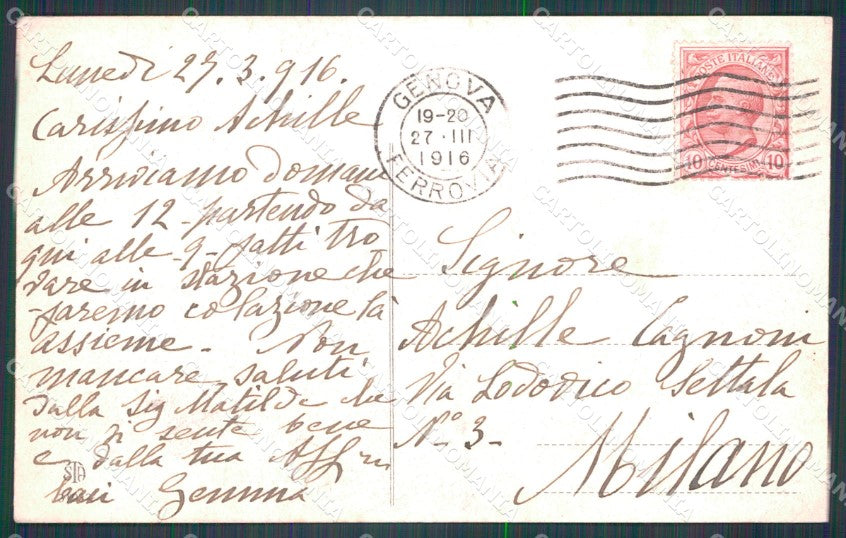 Lunedì 27.3.916.
Carissimo Achille
Arriviamo domani
alle 12 partendo da
qui alle 9 fatti tro
vare in stazione che
faremo colazione là
assieme. Non
mancare saluti
dalla Sig Matilde che
non si sente bene
e dalla tua Aff
baci Gemma
GENOVA
19-20
27·III
1916
FERROVIA
POSTE ITALIANE
10 CENTESIMI 10
Signore
Achille Cagnoni
Via Lodovico Settala
N° 3-
Milano
STA
CARTOLINOMANIA